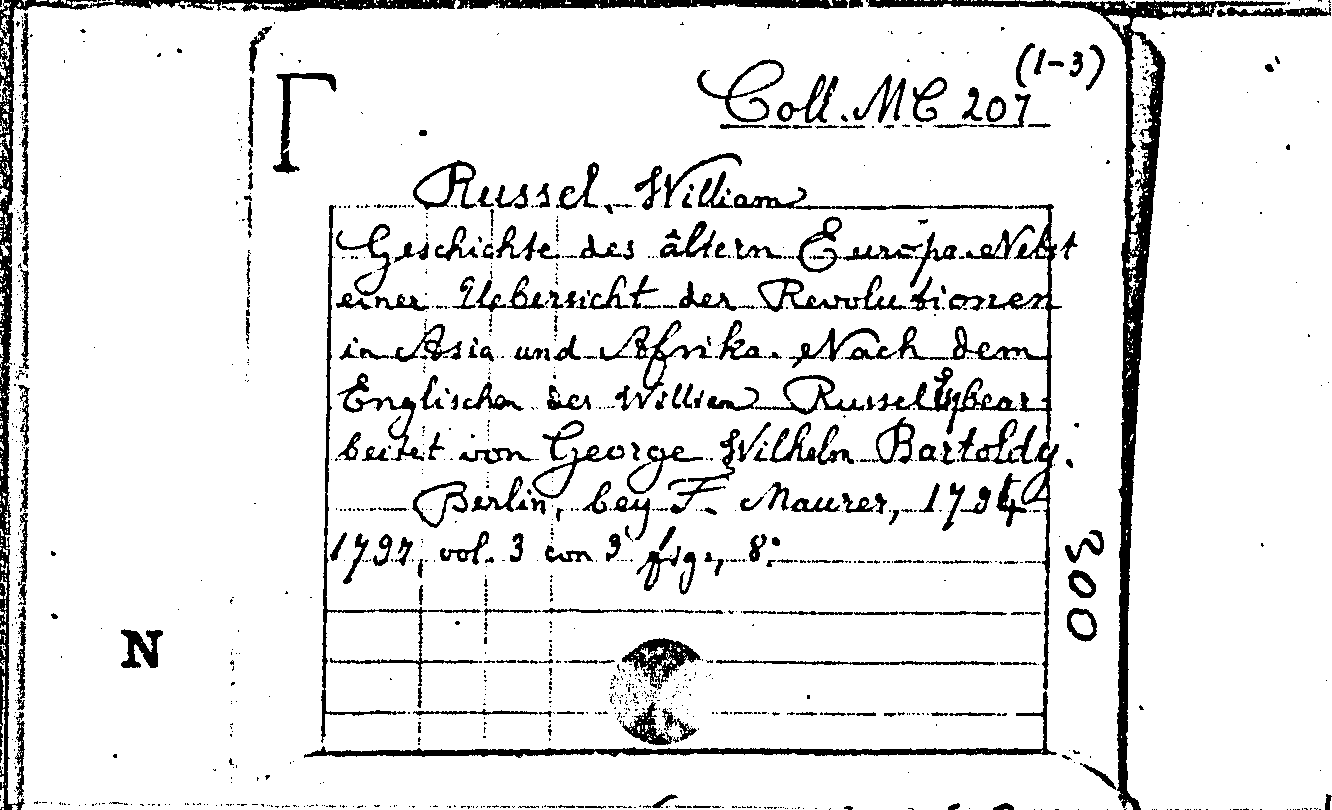 (1-3)
Coll. MC 207
Russel, William
Geschichte des ältern Europa. Nebst
einer Uebersicht der Revolutionen
in Asia und Afrika. Nach dem
Englischen des William Russel bear-
beitet von George Wilhelm Bartoldy.
Berlin, bey F. Maurer, 1794
1797, vol. 3 con 3 frg., 8:
300
N